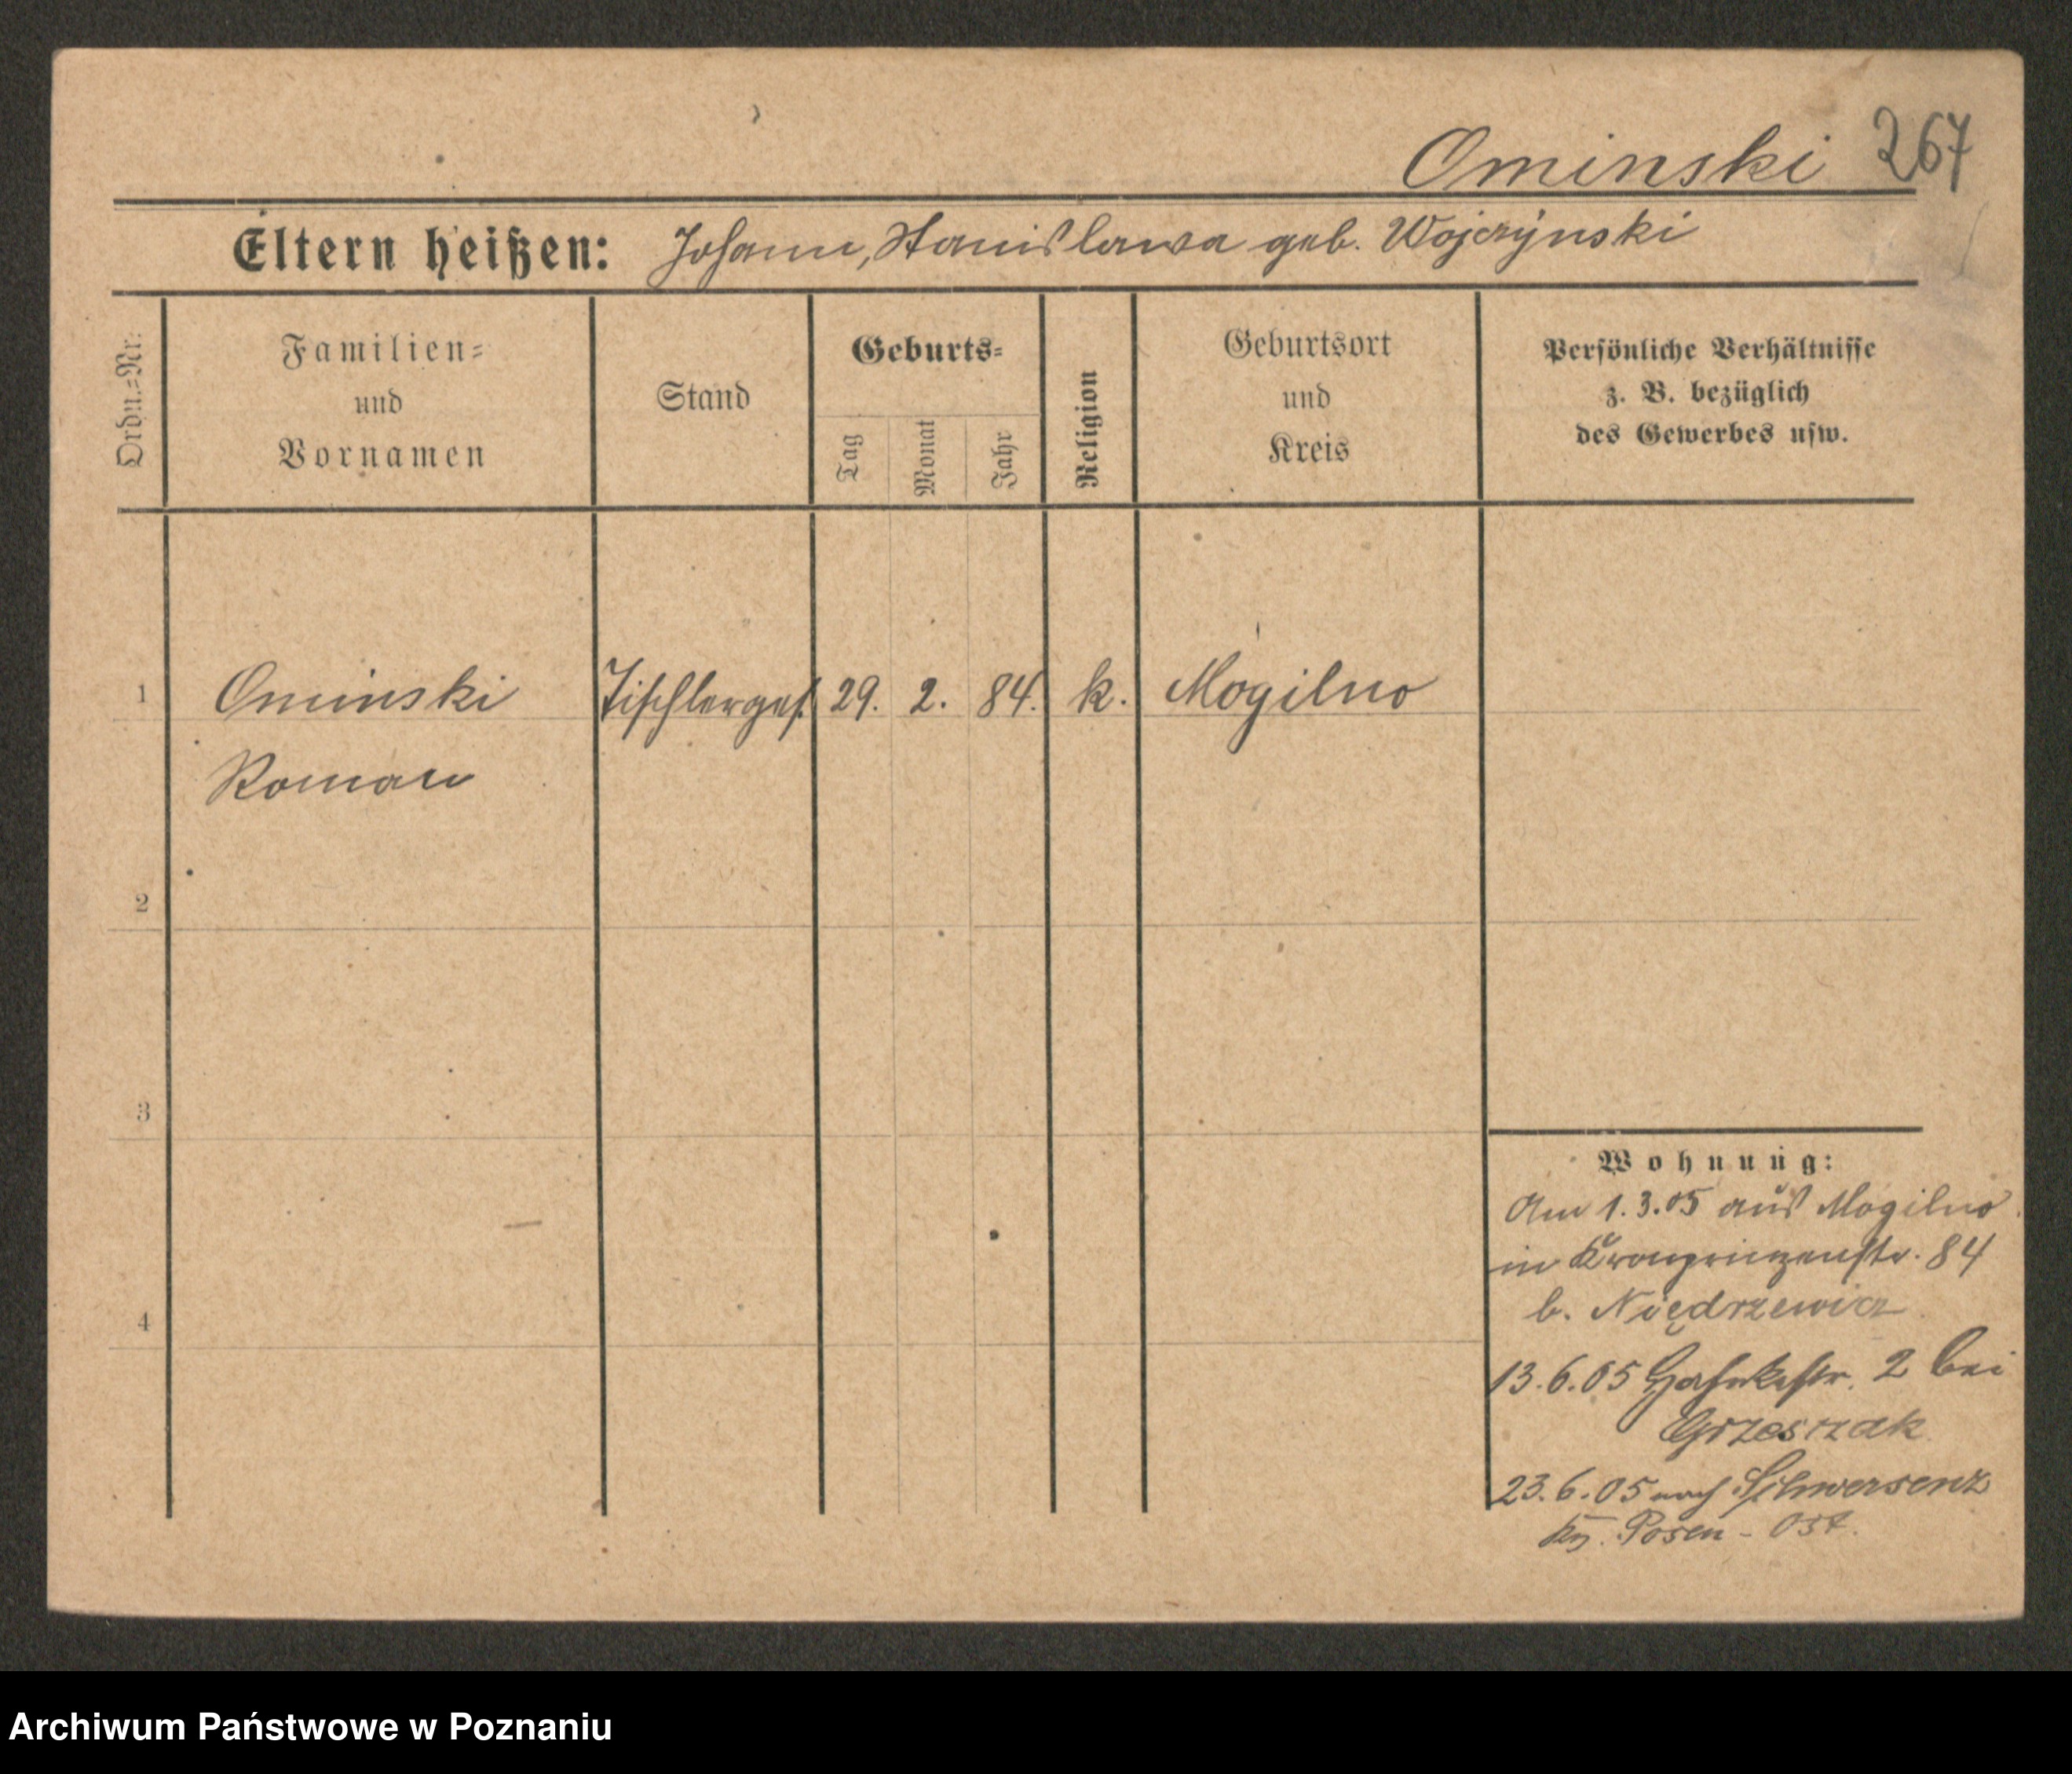 Ominski 267
Eltern heißen: Johann, Stanislawa geb. Wojczynski
Ordn.=Nr.
Familien=
und
Vornamen
Stand
Geburts=
Tag
Monat
Jahr
Religion
Geburtsort
und
Kreis
Persönliche Verhältnisse
z. B. bezüglich
des Gewerbes usw.
1 Ominski Tischlerges. 29. 2. 84. k. Mogilno
Roman
2
3
4
Wohnung:
Am 1.3.05 aus Mogilno
in Kronprinzenstr. 84
b. Niędrzewicz
13.6.05 2 bei
Grzeszak
23.6.05 nach Schwersenz
Posen - Ost.
Archiwum Państwowe w Poznaniu